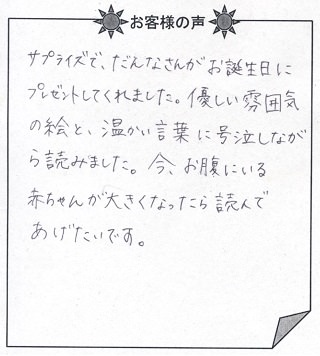 お客様の声
サプライズで、だんなさんがお誕生日に
プレゼントしてくれました。優しい雰囲気
の絵と、温かい言葉に号泣しなが
ら読みました。今、お腹にいる
赤ちゃんが大きくなったら読んで
あげたいです。